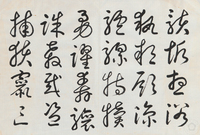 骸垢想浴
執熱願涼
驢騾特犢
躍超驤
誅斬賊盜
捕獲叛亡